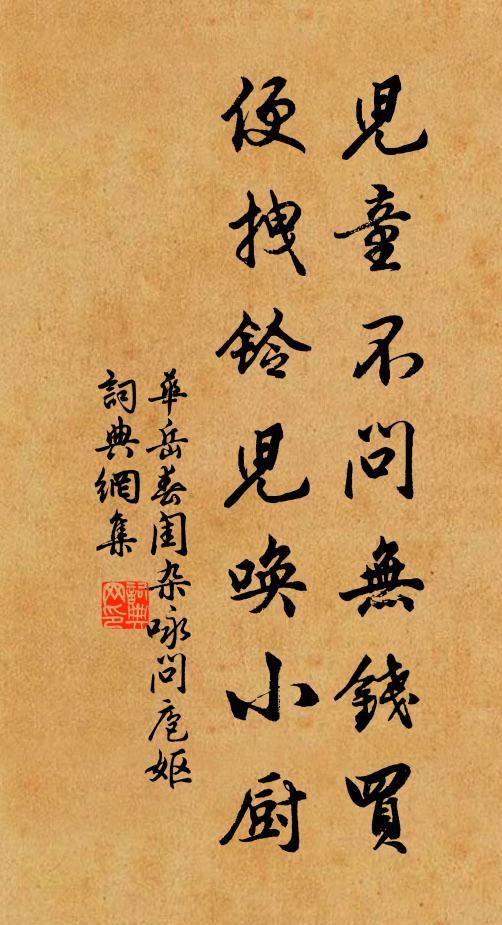 兒童不問無錢買
便拽鈴兒喚小厨
華岳春闺杂咏問庖妪
詞典網集
詞典网印